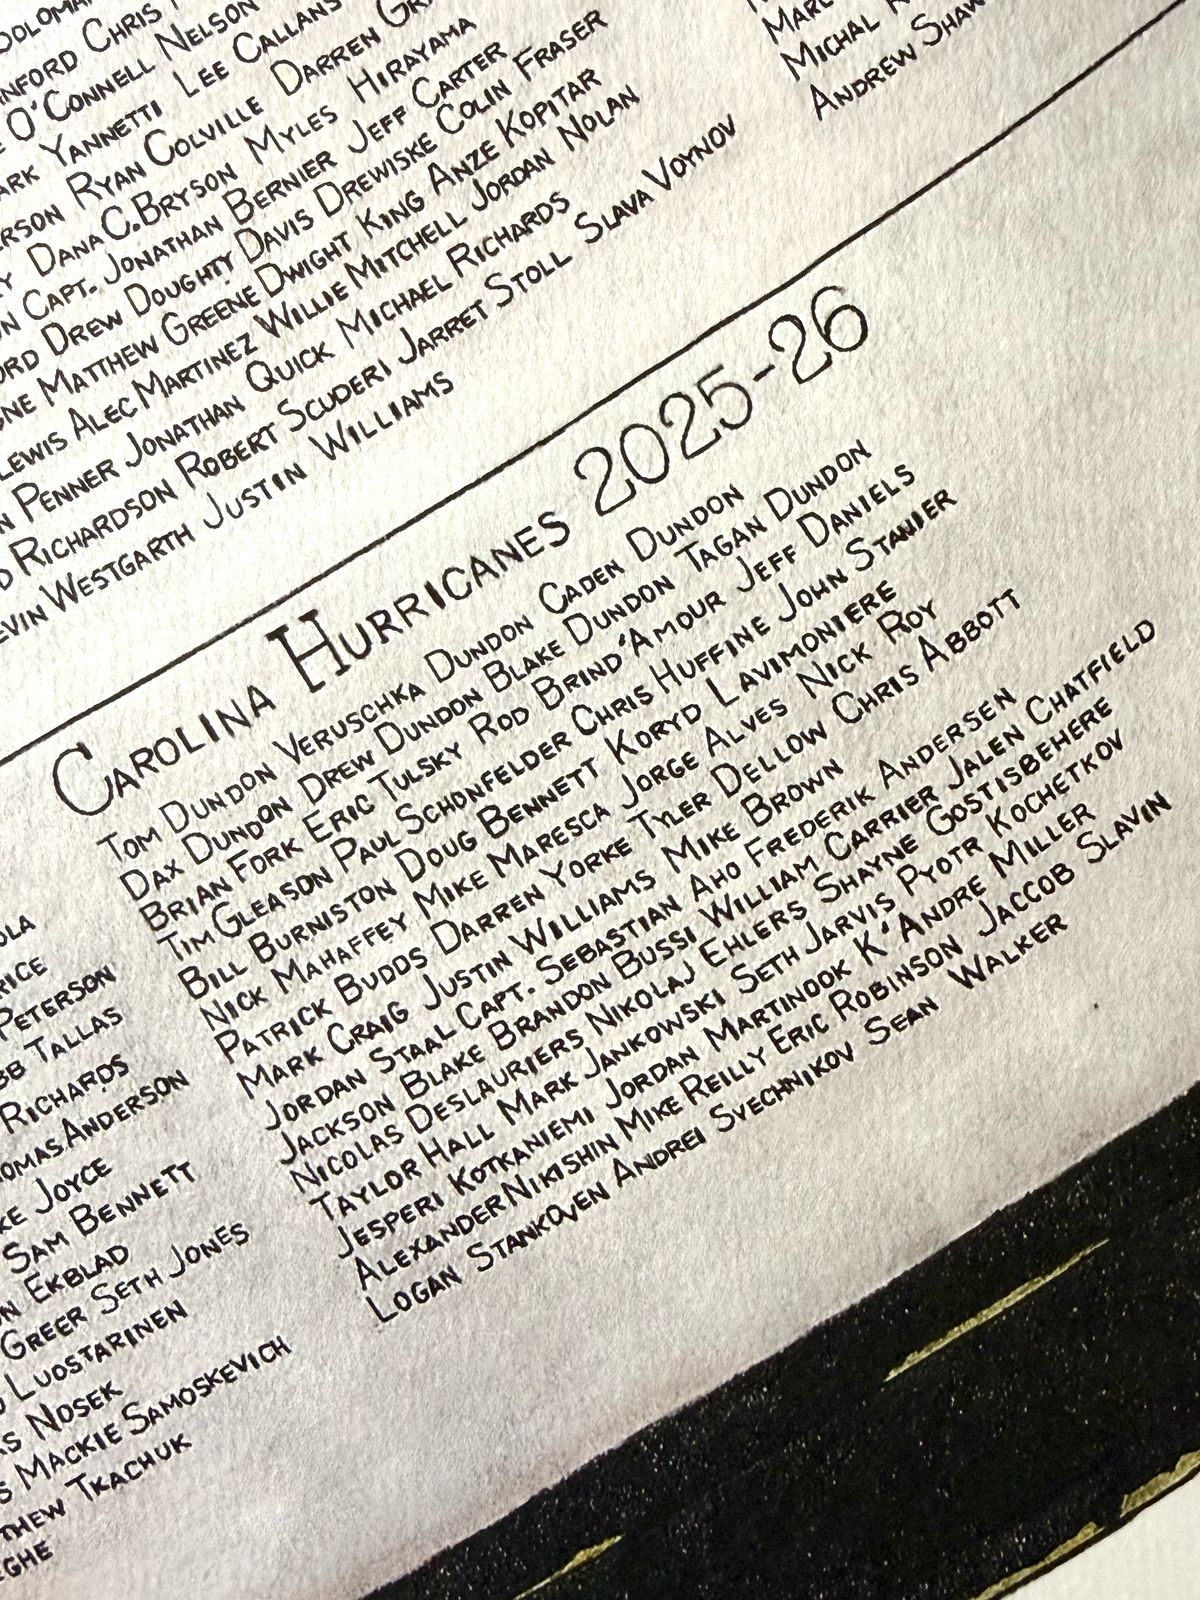 O'CONNELL NELSON
YANNETTI LEE CALLANS
RYAN COLVILLE DARREN
DANA C. BRYSON MYLES HIRAYAMA
CAPT. JONATHAN BERNIER JEFF CARTER
DREW DOUGHTY DAVIS DREWISKE COLIN FRASER
MATTHEW GREENE DWIGHT KING ANZE KOPITAR
LEWIS ALEC MARTINEZ WILLIE MITCHELL JORDAN NOLAN
PENNER JONATHAN QUICK MICHAEL RICHARDS
RICHARDSON ROBERT SCUDERI JARRET STOLL SLAVA VOYNOV
EVIN WESTGARTH JUSTIN WILLIAMS
MICHAL
ANDREW SHAW
CAROLINA HURRICANES 2025-26
TOM DUNDON VERUSCHKA DUNDON CADEN DUNDON
DAX DUNDON DREW DUNDON BLAKE DUNDON TAGAN DUNDON
BRIAN FORK ERIC TULSKY ROD BRIND'AMOUR JEFF DANIELS
TIM GLEASON PAUL SCHONFELDER CHRIS HUFFINE JOHN STANIER
BILL BURNISTON DOUG BENNETT KORYD LAVIMONIERE
NICK MAHAFFEY MIKE MARESCA JORGE ALVES NICK ROY
PATRICK BUDDS DARREN YORKE TYLER DELLOW CHRIS ABBOTT
MARK CRAIG JUSTIN WILLIAMS MIKE BROWN
JORDAN STAAL CAPT. SEBASTIAN AHO FREDERIK ANDERSEN
JACKSON BLAKE BRANDON BUSSI WILLIAM CARRIER JALEN CHATFIELD
NICOLAS DESLAURIERS NIKOLAJ EHLERS SHAYNE GOSTISBEHERE
TAYLOR HALL MARK JANKOWSKI SETH JARVIS PYOTR KOCHETKOV
JESPERI KOTKANIEMI JORDAN MARTINOOK K'ANDRE MILLER
ALEXANDER NIKISHIN MIKE REILLY ERIC ROBINSON JACCOB SLAVIN
LOGAN STANKOVEN ANDREI SVECHNIKOV SEAN WALKER
PETERSON
TALLAS
RICHARDS
ANDERSON
JOYCE
SAM BENNETT
EKBLAD
GREER SETH JONES
LUOSTARINEN
NOSEK
MACKIE SAMOSKEVICH
TKACHUK